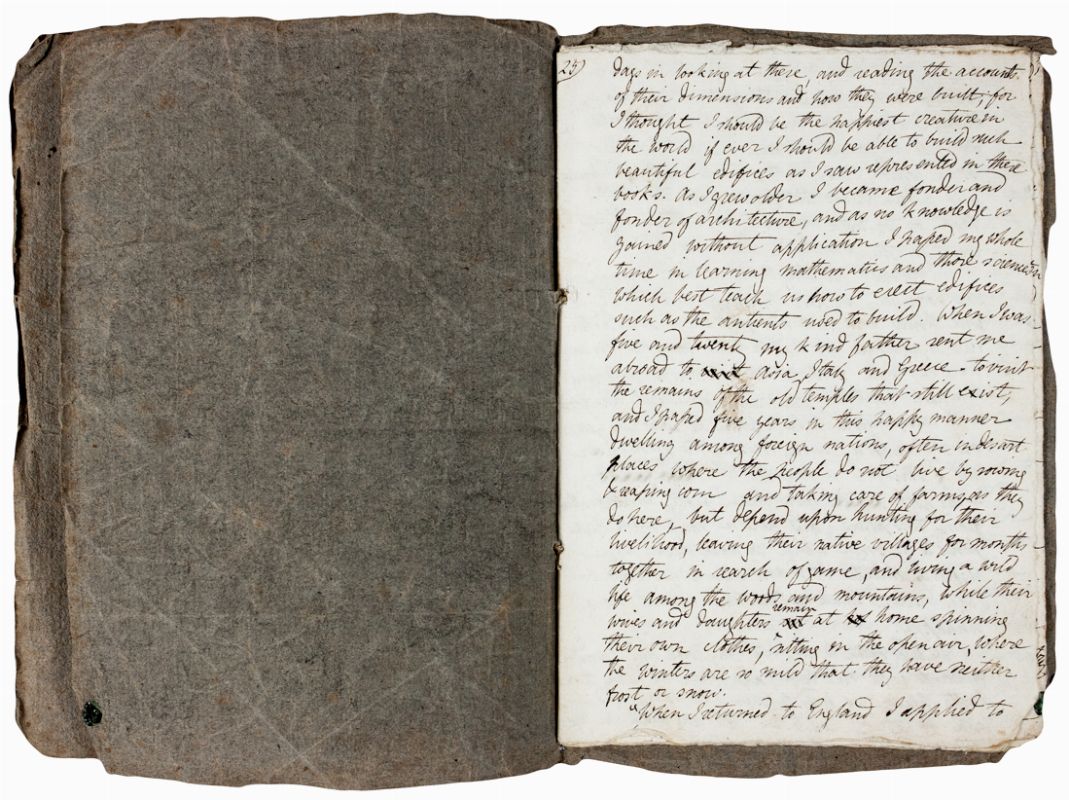 25)
days in looking at these, and reading the accounts
of their dimensions and how they were built, for
I thought I should be the happiest creature in
the world if ever I should be able to build such
beautiful edifices as I saw represented in these
books. As I grew older I became fonder and
fonder of architecture, and as no knowledge is
gained without application I passed my whole
time in learning mathematics and those sciences
which best teach us how to erect edifices
such as the antients used to build. When I was
five and twenty my kind father sent me
abroad to Asia, Italy and Greece to visit
the remains of the old temples that still exist,
and I passed five years in this happy manner
dwelling among foreign nations, often in desart
places where the people do not live by sowing
& reaping corn and taking care of farms as they
do here, but depend upon hunting for their
livelihood, leaving their native villages for months
together in search of game, and living a wild
life among the woods and mountains, while their
wives and daughters remain at home spinning
their own clothes, sitting in the open air, where
the winters are so mild that they have neither
frost or snow.
"When I returned to England I applied to